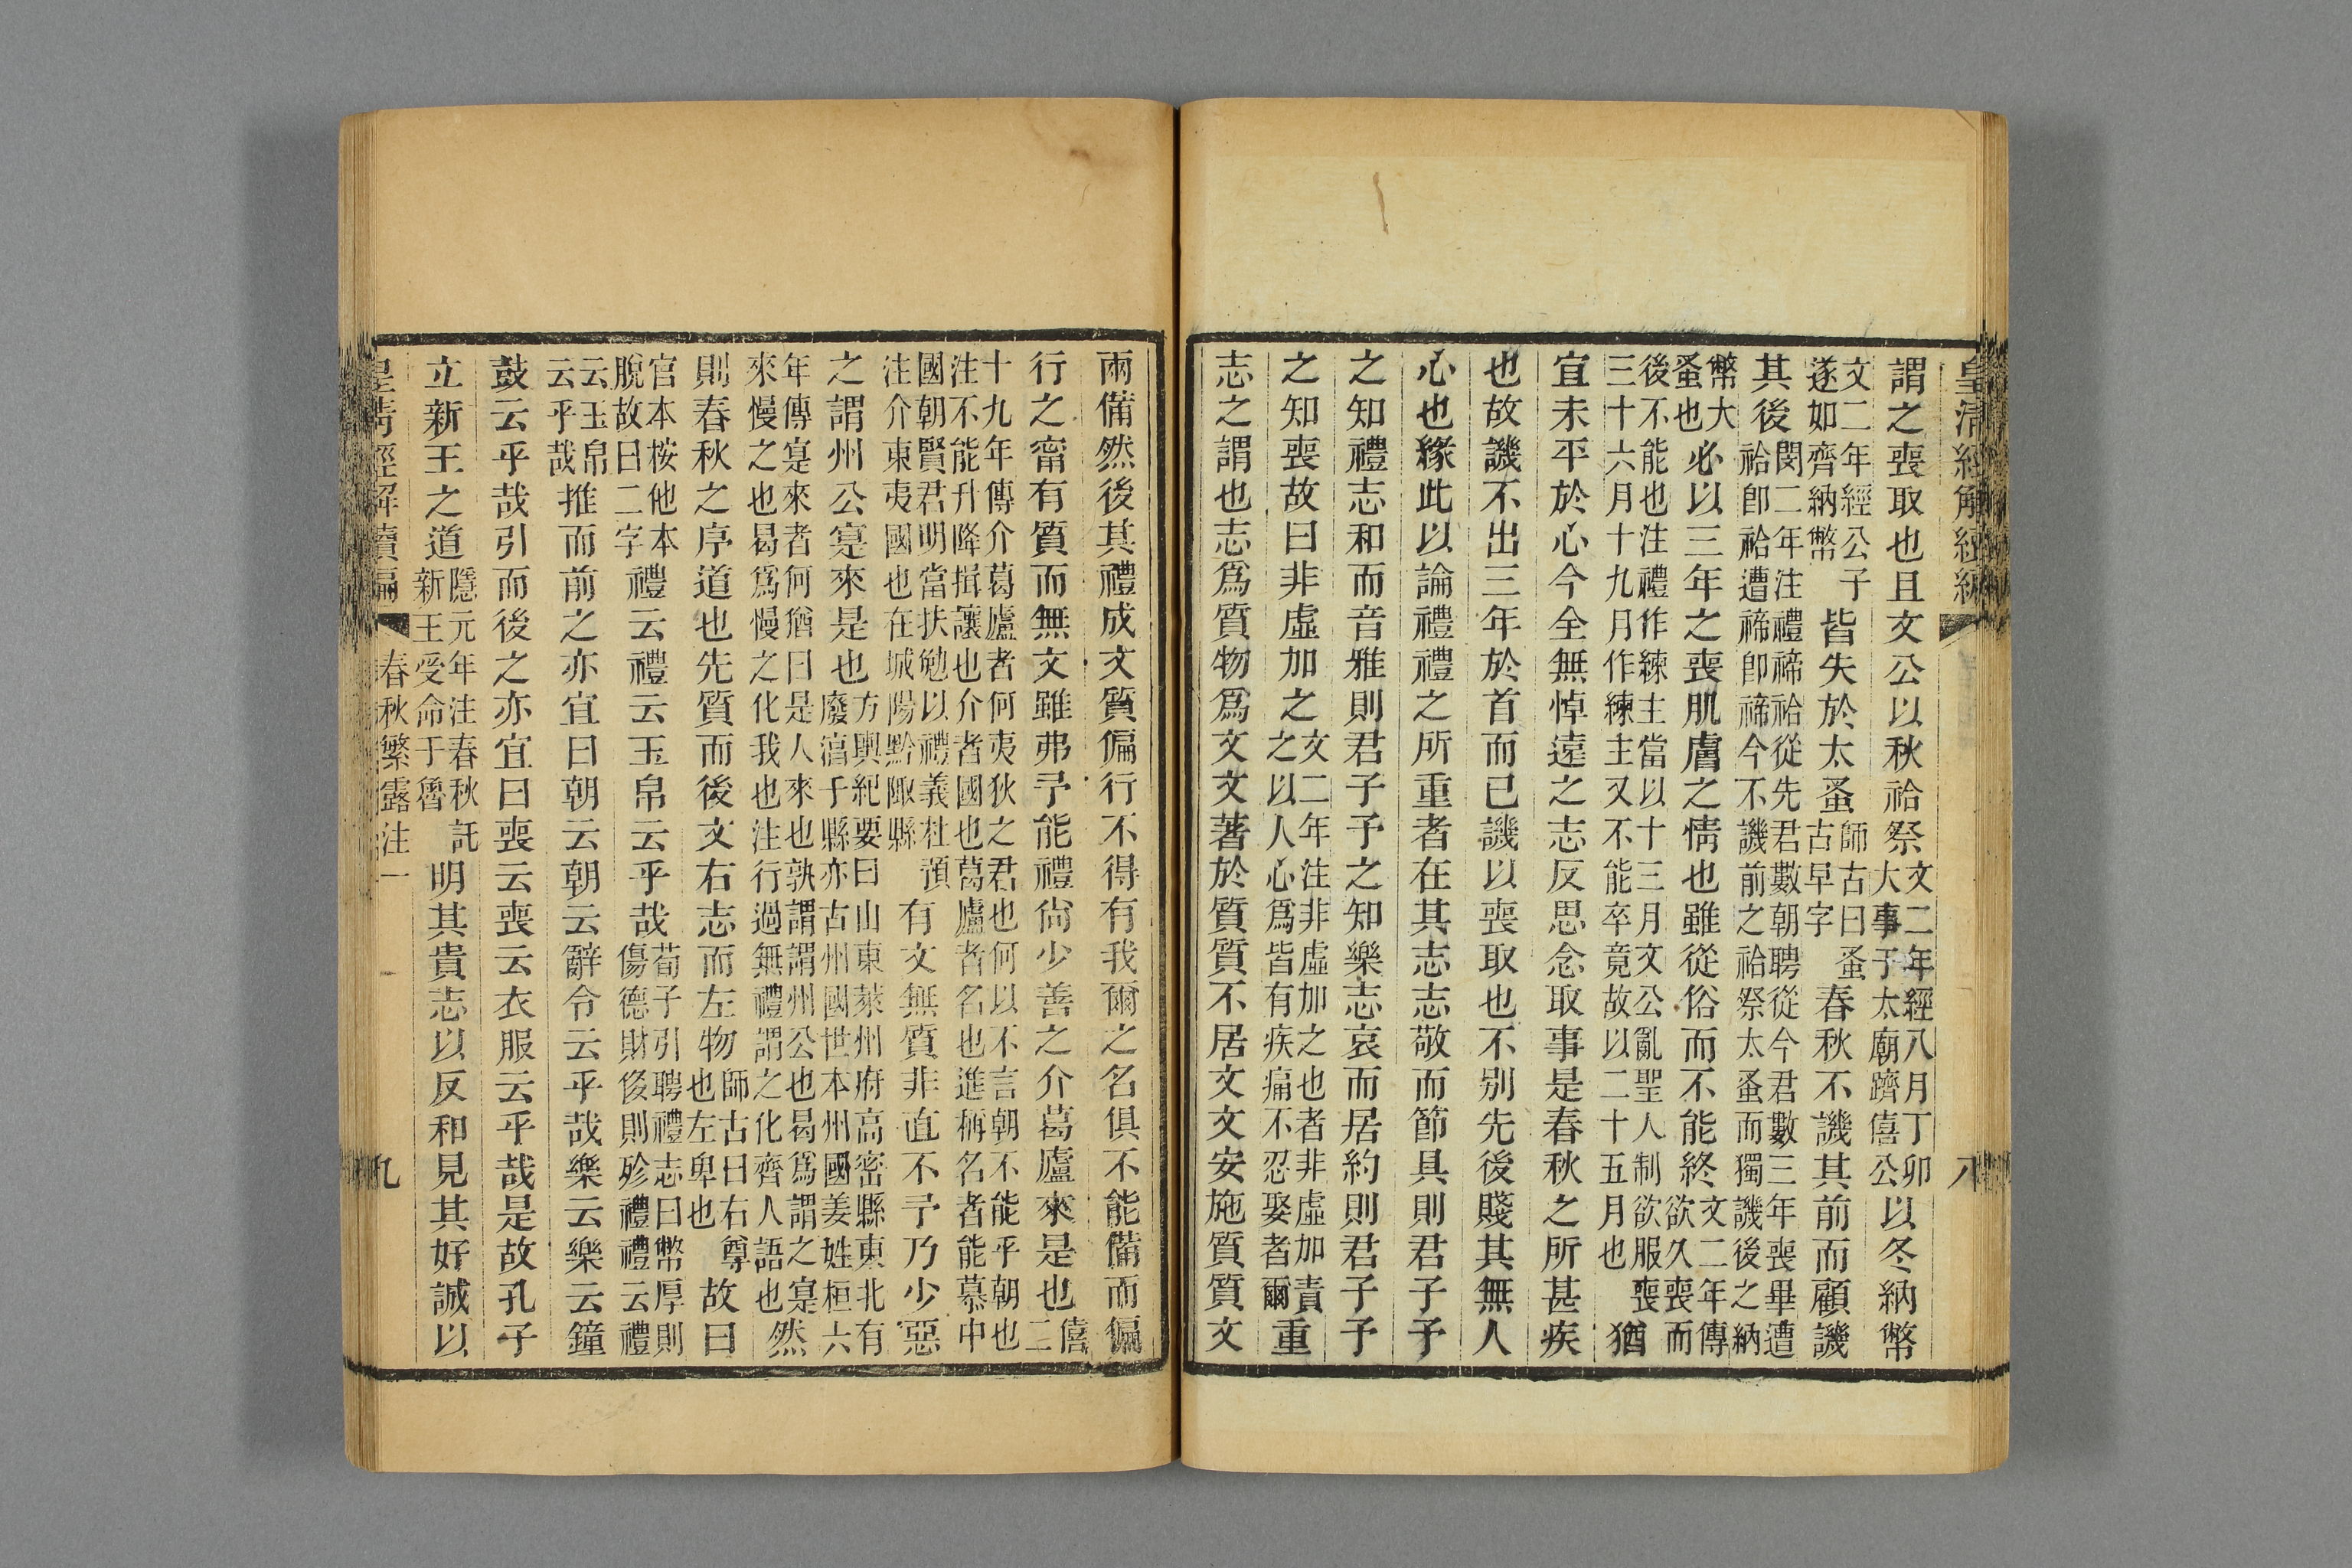 皇清經解續編　八
謂之喪取也且文公以秋祫祭文二年經八月丁卯大事于太廟躋僖公以冬納幣
文二年經公子遂如齊納幣皆失於太蚤師古曰蚤古早字春秋不譏其前而顧譏
其後閔二年注禮禘祫從先君數朝聘從今君數三年喪畢遭祫卽祫遭禘卽禘今不譏前之祫祭太蚤而獨譏後之納
幣大蚤也必以三年之喪肌膚之情也雖從俗而不能終文二年傳欲久喪而
後不能也注禮作練主當以十三月文公亂聖人制欲服喪三十六月十九月作練主又不能卒竟故以二十五月也猶
宜未平於心今全無悼遠之志反思念取事是春秋之所甚疾
也故譏不出三年於首而已譏以喪取也不別先後賤其無人
心也緣此以論禮禮之所重者在其志志敬而節具則君子予
之知禮志和而音雅則君子予之知樂志哀而居約則君子予
之知喪故曰非虛加之文二年注非虛加之也者非虛加責之以人心爲皆有疾痛不忍娶者爾重
志之謂也志爲質物爲文文著於質質不居文文安施質質文
兩備然後其禮成文質偏行不得有我爾之名俱不能備而偏
行之甯有質而無文雖弗予能禮尙少善之介葛廬來是也僖二
十九年傳介葛廬者何夷狄之君也何以不言朝不能乎朝也注不能升降揖讓也介者國也葛廬者名也進稱名者能慕中
國朝賢君明當扶勉以禮義杜預注介東夷國也在城陽黔陬縣有文無質非直不予乃少惡
之謂州公寔來是也方輿紀要曰山東萊州府高密縣東北有廢淳于縣亦古州國世本州國姜姓桓六
年傳寔來者何猶曰是人來也孰謂謂州公也曷爲謂之寔來慢之也曷爲慢之化我也注行過無禮謂之化齊人語也然
則春秋之序道也先質而後文右志而左物師古曰右尊也左卑也故曰
官本桉他本脫故曰二字禮云禮云玉帛云乎哉荀子引聘禮志曰幣厚則傷德財侈則殄禮禮云禮
云玉帛云乎哉推而前之亦宜曰朝云朝云辭令云乎哉樂云樂云鐘
鼓云乎哉引而後之亦宜曰喪云喪云衣服云乎哉是故孔子
立新王之道隱元年注春秋託新王受命于魯明其貴志以反和見其好誠以
皇清經解續編　春秋繁露注一　九